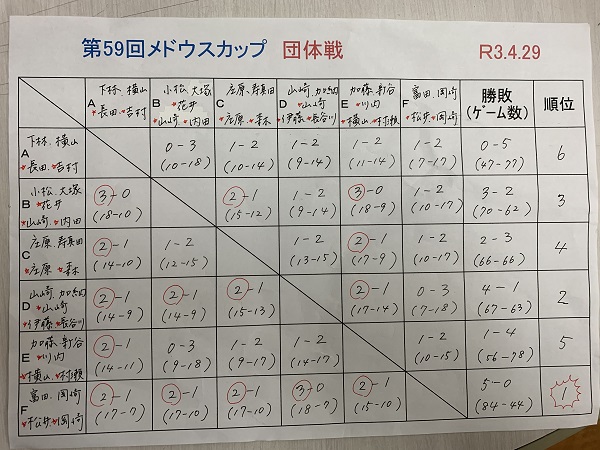 第59回メドウスカップ 団体戦 R3.4.29
A 下林、横山 *長田 *吉村
B 小松、大塚 *花井 *山崎 *内田
C 庄原、寿真田 *庄原 *森木
D 山崎、加納 *山崎 *伊藤 *長谷川
E 加藤、新谷 *川内 *横山 *村瀬
F 富田、岡崎 *松井 *岡崎
勝敗 (ゲーム数)
順位
下林、横山
A
*長田 *吉村
0-3 1-2 1-2 1-2 1-2 0-5 6
(10-18) (10-14) (9-14) (11-14) (7-17) (47-77)
小松、大塚
B *花井
*山崎 *内田
3-0 2-1 1-2 3-0 1-2 3-2 3
(18-10) (15-12) (9-14) (18-9) (10-17) (70-62)
庄原、寿真田
C
*庄原 *森木
2-1 1-2 1-2 2-1 1-2 2-3 4
(14-10) (12-15) (13-15) (17-9) (10-17) (66-66)
山崎、加納
D *山崎
*伊藤 *長谷川
2-1 2-1 2-1 2-1 0-3 4-1 2
(14-9) (14-9) (15-13) (17-14) (7-18) (67-63)
加藤、新谷
E *川内
*横山 *村瀬
2-1 0-3 1-2 1-2 1-2 1-4 5
(14-11) (9-18) (9-17) (14-17) (10-15) (56-78)
富田、岡崎
F
*松井 *岡崎
2-1 2-1 2-1 3-0 2-1 5-0 1
(17-7) (17-10) (17-10) (18-7) (15-10) (84-44)